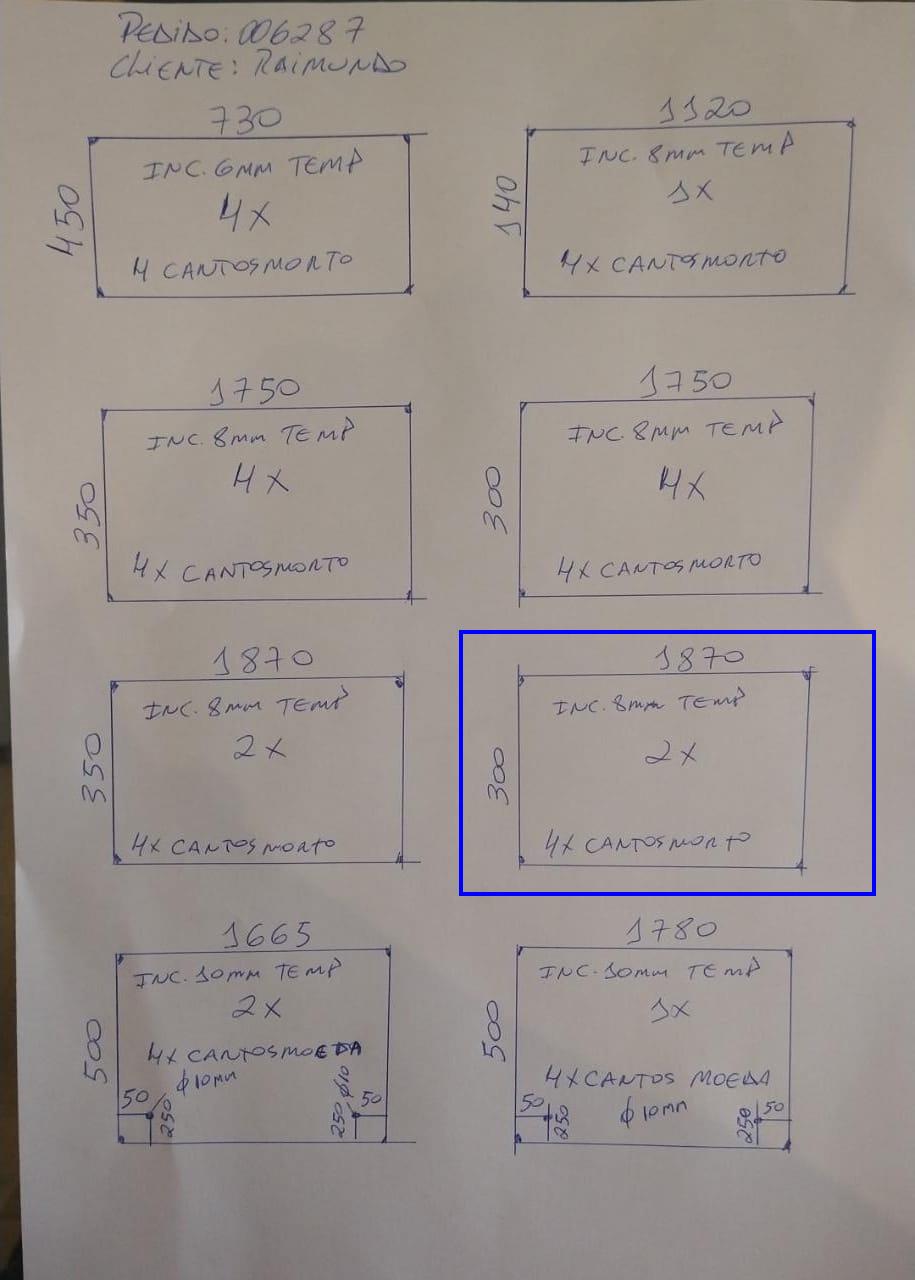 PEDIDO: 006287
CLIENTE: RAIMUNDO
730
450
INC. 6MM TEMP
4X
4 CANTOSMORTO
1120
140
INC. 8mm TEMP
1X
4X CANTOSMORTO
1750
350
INC. 8mm TEMP
4X
4X CANTOSMORTO
1750
300
INC. 8MM TEMP
4X
4X CANTOSMORTO
1870
350
INC. 8mm TEMP
2X
4X CANTOSMORTO
1870
300
INC. 8mm TEMP
2X
4X CANTOSMORTO
1665
500
INC. 10mm TEMP
2X
4X CANTOSMOEDA
ϕ10mm
50
250
250
ϕ10
50
1780
500
INC. 10mm TEMP
1X
4X CANTOS MOEDA
50
250
ϕ10mm
250
50